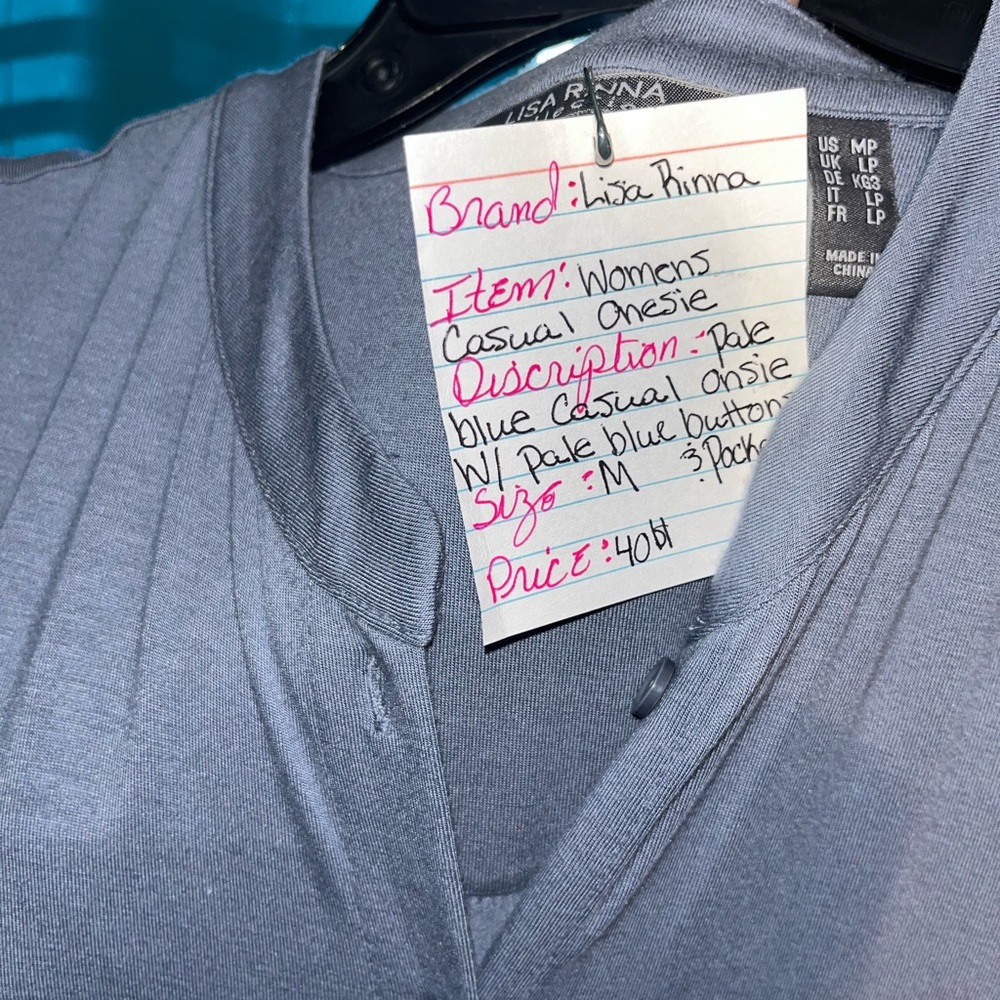 LISA RINNA
Brand: Lisa Rinna
Item: Womens
Casual Onesie
Discription: Pale
blue Casual onsie
W/ pale blue button
& Pock
Size: M
Price: 40
US MP
UK LP
DE KG3
IT LP
FR LP
MADE I
CHINA